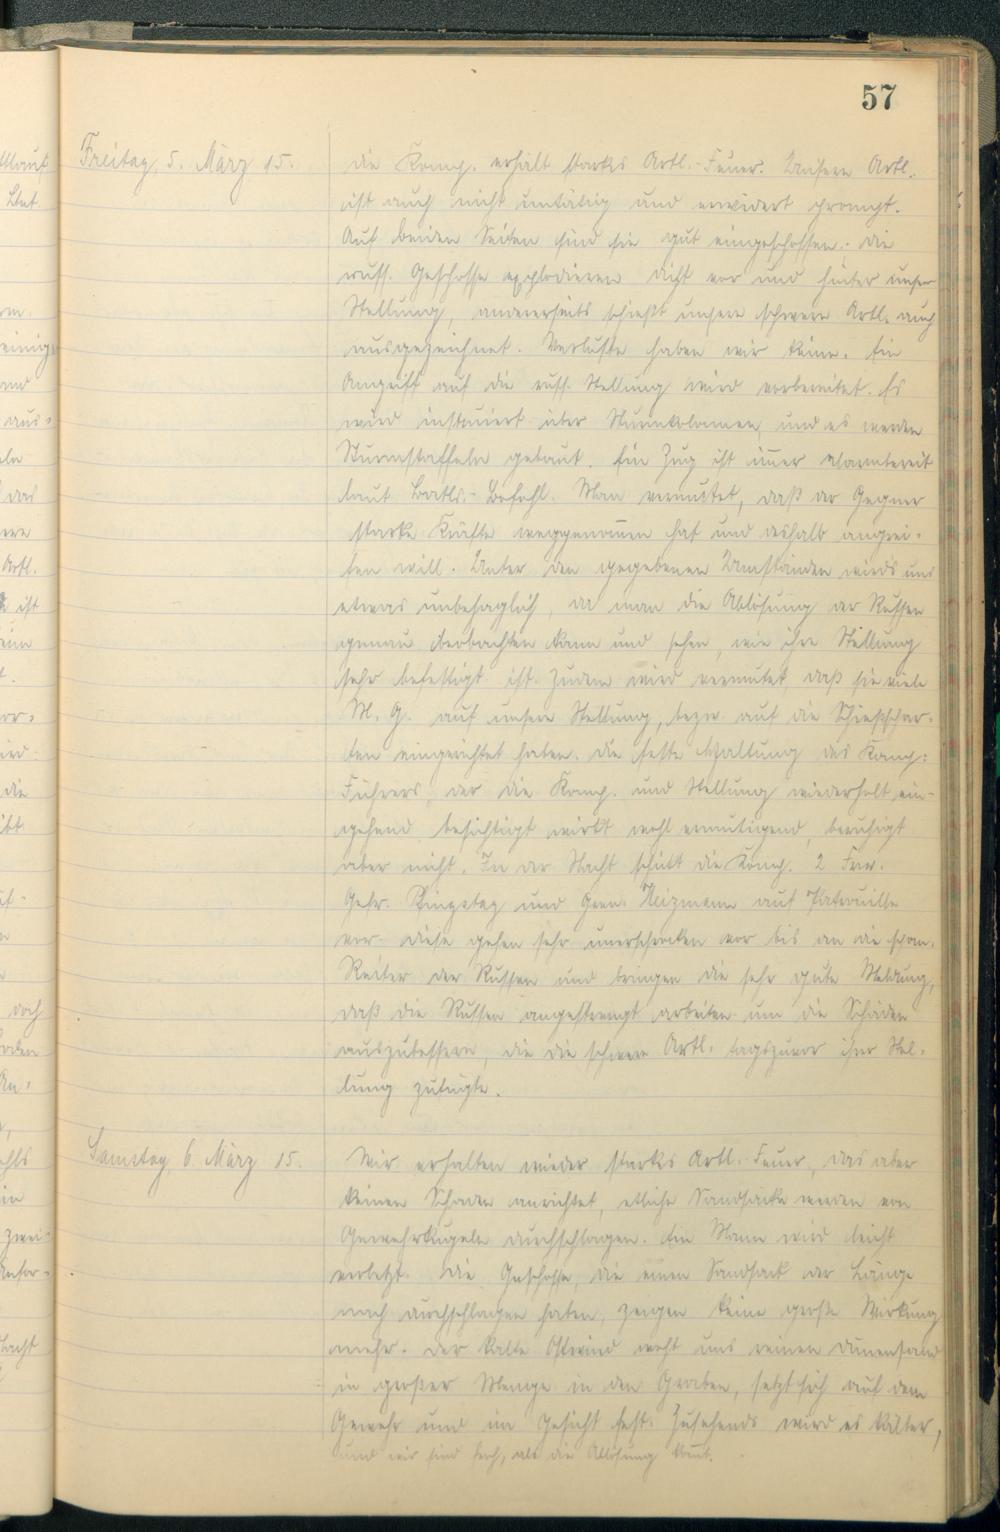 57
Freitag, 5. März 15.
Die Komp. erhält starkes Artl.-Feuer. Unsere Artl.
ist auch nicht untätig und erwidert prompt.
Auf beiden Seiten sind sie gut eingeschossen: die
russ. Geschosse explodieren dicht vor und hinter unser
Stellung, andererseits schießt unsere schwere Artl. auch
ausgezeichnet. Verluste haben wir keine. Ein
Angriff auf die russ. Stellung wird vorbereitet. Es
wird instruiert über Sturmkolonnen, und es werden
Sturmstaffeln gebaut. Ein Zug ist im̄er alarmbereit
laut Batls.-Befehl. Man vermutet, daß der Gegner
starke Kräfte weggenom̄en hat und deshalb angrei-
fen will. Unter den gegebenen Umständen wirds uns
etwas unbehaglich, da man die Ablösung der Russen
genau beobachten kann und sehen, wie ihre Stellung
sehr befestigt ist. Zudem wird vermutet, daß sie viele
M. G. auf unsere Stellung, bezw. auf die Schießschar-
ten eingerichtet haben. Die feste Haltung des Komp:
Führers, der die Komp. und Stellung wiederholt ein-
gehend besichtigt wirkt wohl ermutigend, beruhigt
aber nicht. In der Nacht schickt die Komp. 2 Frw.
Gefr. Pfingstag und Gren. Heizmann auf Patrouille
vor. Diese gehen sehr unerschrocken vor bis an die span.
Reiter der Russen und bringen die sehr gute Meldung,
daß die Russen angestrengt arbeiten um die Schäden
auszubessern, die die schwere Artl. tagszuvor ihrer Stel-
lung zufügte.
Samstag, 6. März 15.
Wir erhalten wieder starkes Artl.-Feuer, das aber
keinen Schaden anrichtet, etliche Sandsäcke werden von
Gewehrkugeln durchschlagen. Ein Mann wird leicht
verletzt. Die Geschosse, die einen Sandsack der Länge
nach durchschlagen haben, zeigen keine große Wirkung
mehr. Der kalte Ostwind weht uns reinen Dünensand
in großer Menge in den Graben, setzt sich auf dem
Gewehr und im Gesicht fest. Zusehends wird es kälter,
und wir sind froh, als die Ablösung kom̄t.